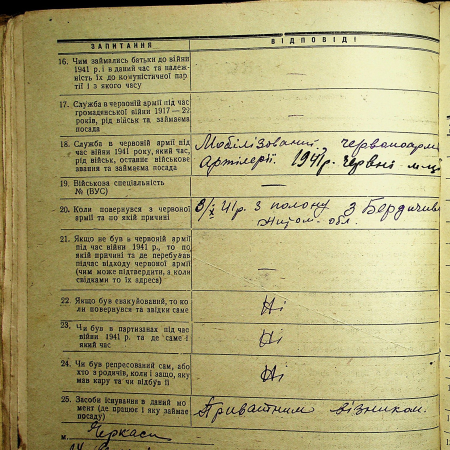 ЗАПИТАННЯ ВІДПОВІДІ
16. Чим займались батьки до війни
1941 р. і в даний час та належ-
ність їх до комуністичної пар-
тії і з якого часу
—
17. Служба в червоній армії під час
громадянської війни 1917—22
років, рід військ та займаєма
посада
—
18. Служба в червоній армії під
час війни 1941 року, який час,
рід військ, останнє військове
звання та займаєма посада
Мобілізований, червоноарм
Артілерії. 1941 р. червні м-ці
19. Військова спеціальність
№ (ВУС)
—
20. Коли повернувся з червоної
армії та по якій причині
8/X 41 р. з полону з Бердичів
Житом. обл.
21. Якщо не був в червоній армії
під час війни 1941 р., то по
якій причині та де перебував
підчас відходу червоної армії
(чим може підтвердити, а коли
свідками то їх адреса)
—
22. Якщо був евакуйований, то ко-
ли повернувся та звідки саме
Ні
23. Чи був в партизанах під час
війни 1941 р. та де саме і
який час
Ні
24. Чи був репресований сам, або
хто з родичів, коли і защо, яку
мав кару та чи відбув її
Ні
25. Засоби існування в даний мо-
мент (де працює і яку займає
посаду)
Приватним візником.
м. Черкаси